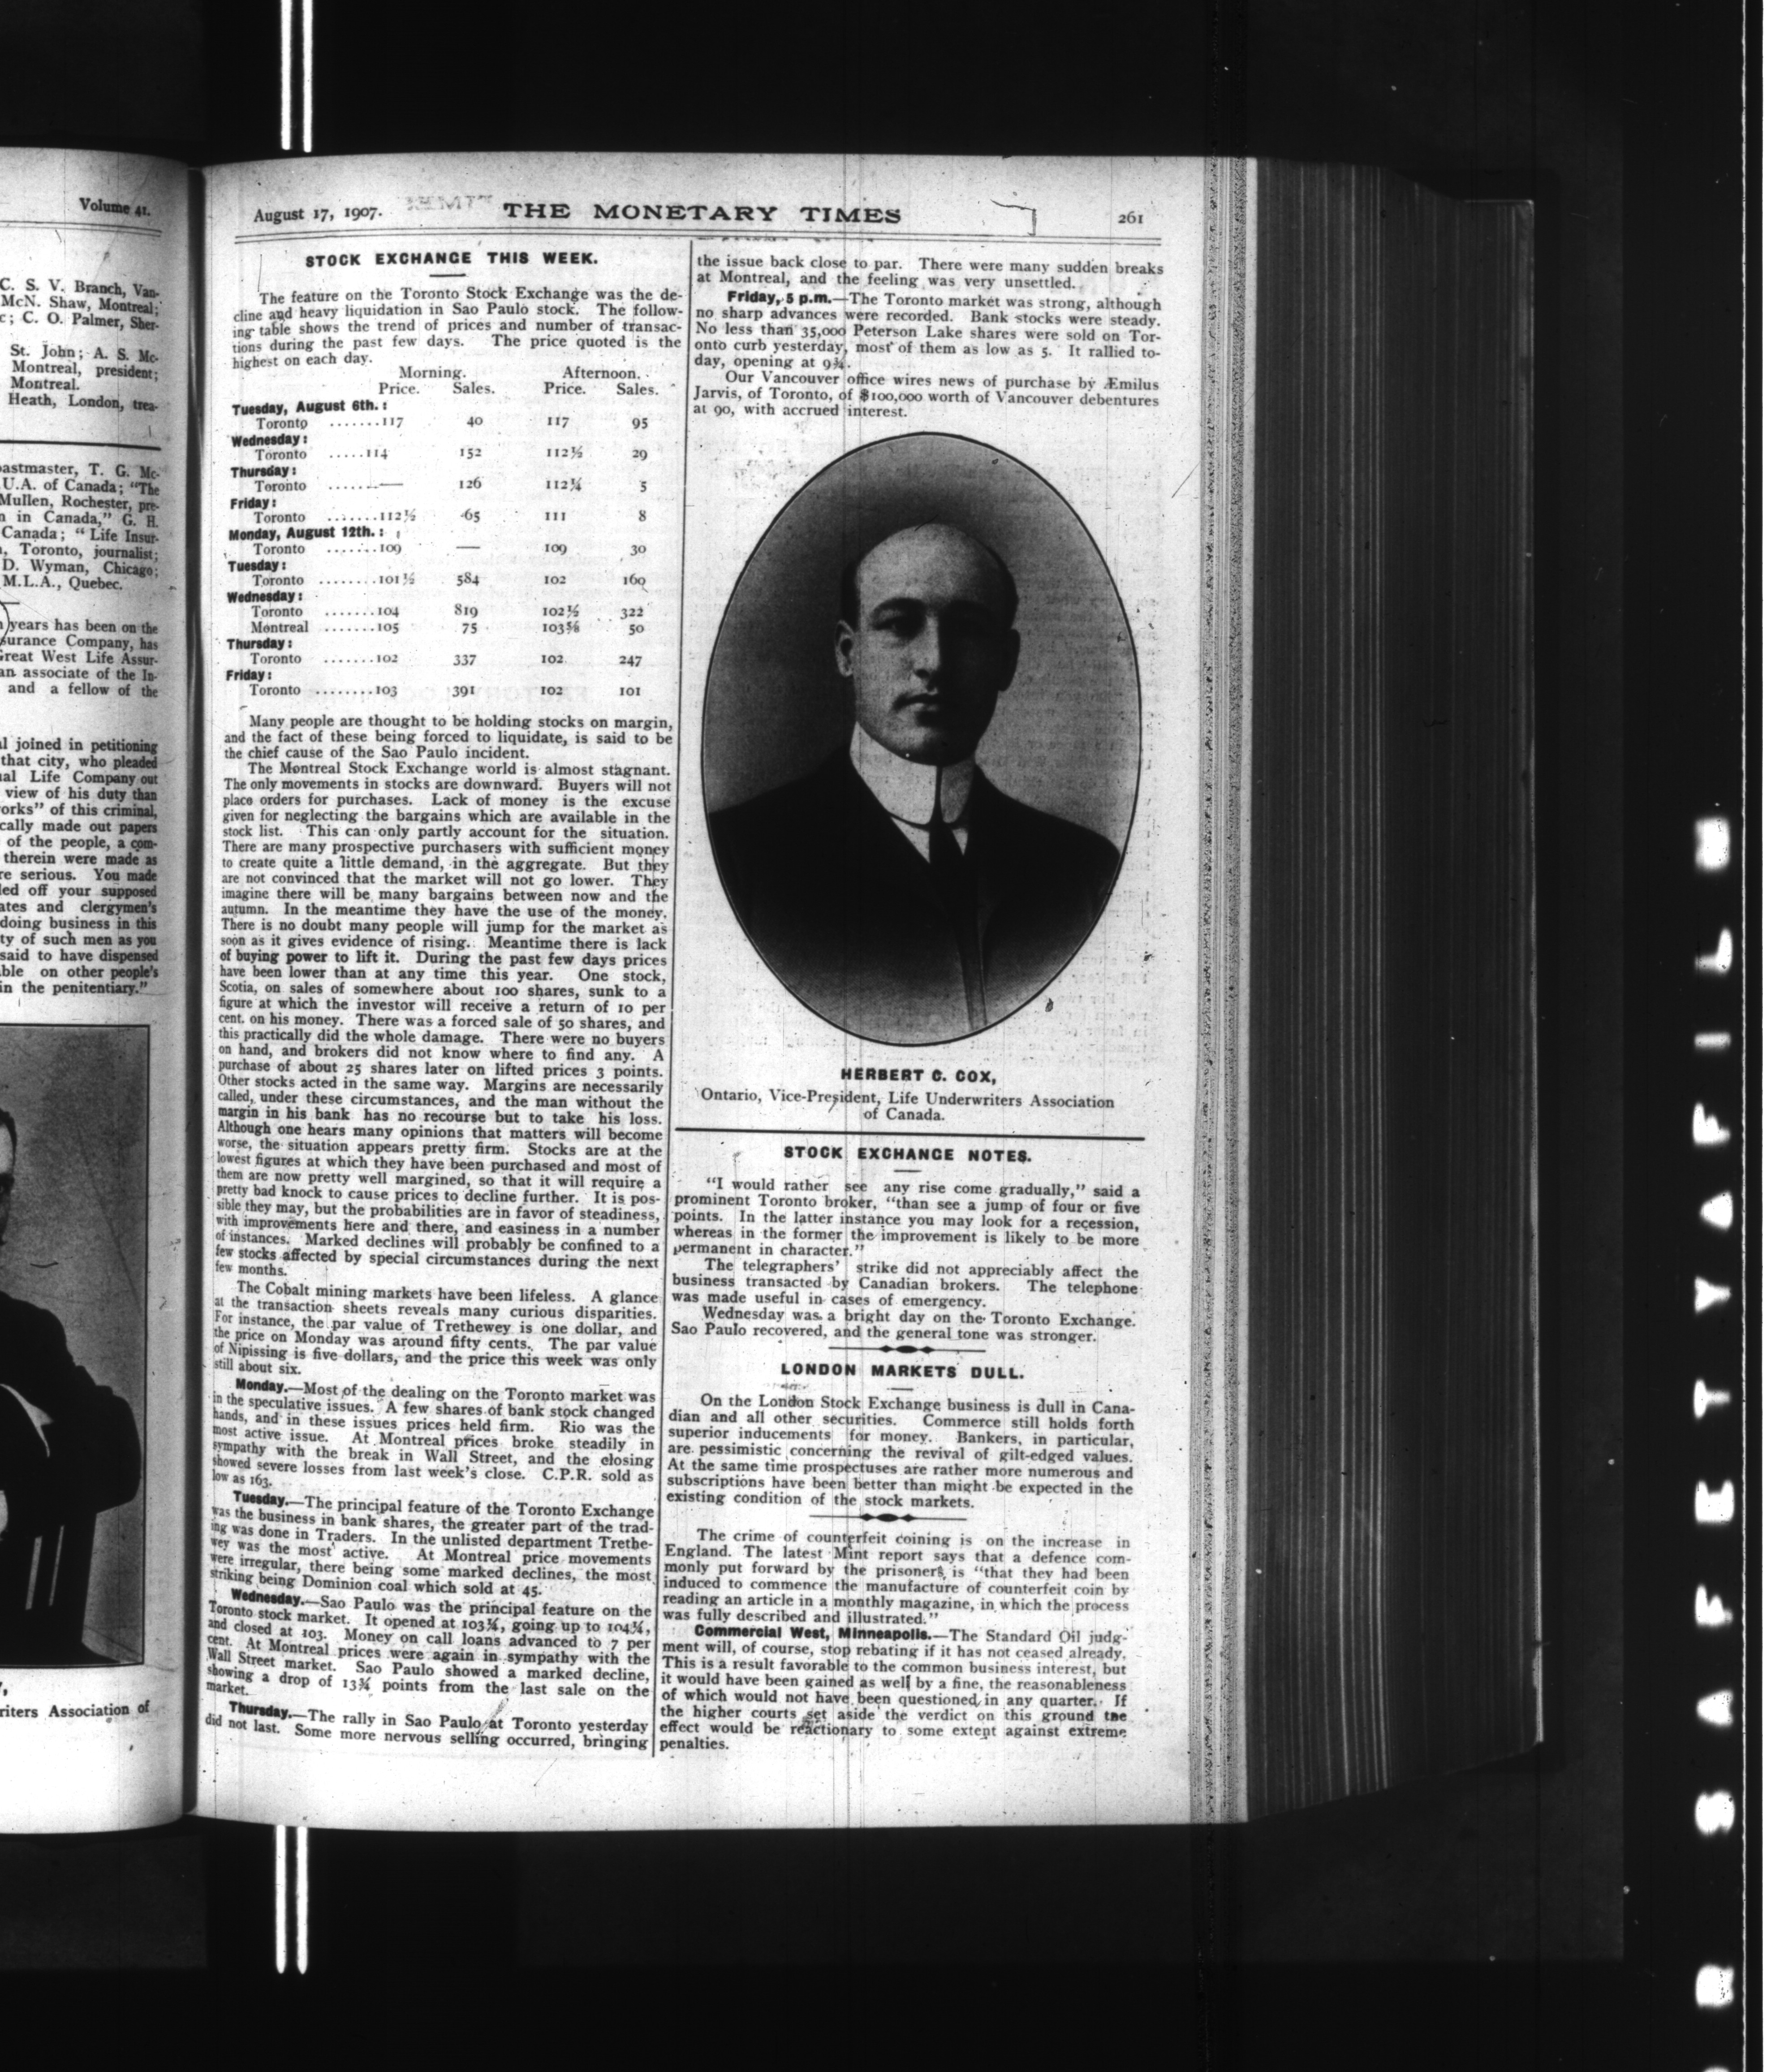 Volume 41.
C. S. V. Branch, Van-
McN. Shaw, Montreal;
C. O. Palmer, Sher-
St. John; A. S. Mc-
Montreal, president;
Montreal.
Heath, London, trea-
oastmaster, T. G. Mc-
U.A. of Canada; "The
Mullen, Rochester, pre-
n in Canada," G. H.
Canada; "Life Insur-
, Toronto, journalist;
D. Wyman, Chicago;
M.L.A., Quebec.
years has been on the
surance Company, has
Great West Life Assur-
an associate of the In-
and a fellow of the
l joined in petitioning
that city, who pleaded
al Life Company out
view of his duty than
orks" of this criminal,
cally made out papers
of the people, a com-
therein were made as
re serious. You made
led off your supposed
ates and clergymen's
doing business in this
ty of such men as you
said to have dispensed
ble on other people's
in the penitentiary."
riters Association of
August 17, 1907.
THE MONETARY TIMES
261
STOCK EXCHANGE THIS WEEK.
The feature on the Toronto Stock Exchange was the de-
cline and heavy liquidation in Sao Paulo stock. The follow-
ing table shows the trend of prices and number of transac-
tions during the past few days. The price quoted is the
highest on each day.
Morning. Afternoon.
Price. Sales. Price. Sales.
Tuesday, August 6th.:
Toronto .......117 40 117 95
Wednesday:
Toronto .....114 152 112½ 29
Thursday:
Toronto .......— 126 112¼ 5
Friday:
Toronto .......112½ 65 111 8
Monday, August 12th.:
Toronto .......109 — 109 30
Tuesday:
Toronto ........101½ 584 102 160
Wednesday:
Toronto .......104 819 102½ 322
Montreal .......105 75 103⅝ 50
Thursday:
Toronto .......102 337 102 247
Friday:
Toronto ........103 391 102 101
Many people are thought to be holding stocks on margin,
and the fact of these being forced to liquidate, is said to be
the chief cause of the Sao Paulo incident.
The Montreal Stock Exchange world is almost stagnant.
The only movements in stocks are downward. Buyers will not
place orders for purchases. Lack of money is the excuse
given for neglecting the bargains which are available in the
stock list. This can only partly account for the situation.
There are many prospective purchasers with sufficient money
to create quite a little demand, in the aggregate. But they
are not convinced that the market will not go lower. They
imagine there will be many bargains between now and the
autumn. In the meantime they have the use of the money.
There is no doubt many people will jump for the market as
soon as it gives evidence of rising. Meantime there is lack
of buying power to lift it. During the past few days prices
have been lower than at any time this year. One stock,
Scotia, on sales of somewhere about 100 shares, sunk to a
figure at which the investor will receive a return of 10 per
cent. on his money. There was a forced sale of 50 shares, and
this practically did the whole damage. There were no buyers
on hand, and brokers did not know where to find any. A
purchase of about 25 shares later on lifted prices 3 points.
Other stocks acted in the same way. Margins are necessarily
called, under these circumstances, and the man without the
margin in his bank has no recourse but to take his loss.
Although one hears many opinions that matters will become
worse, the situation appears pretty firm. Stocks are at the
lowest figures at which they have been purchased and most of
them are now pretty well margined, so that it will require a
pretty bad knock to cause prices to decline further. It is pos-
sible they may, but the probabilities are in favor of steadiness,
with improvements here and there, and easiness in a number
of instances. Marked declines will probably be confined to a
few stocks affected by special circumstances during the next
few months.
The Cobalt mining markets have been lifeless. A glance
at the transaction sheets reveals many curious disparities.
For instance, the par value of Trethewey is one dollar, and
the price on Monday was around fifty cents. The par value
of Nipissing is five dollars, and the price this week was only
still about six.
Monday.—Most of the dealing on the Toronto market was
in the speculative issues. A few shares of bank stock changed
hands, and in these issues prices held firm. Rio was the
most active issue. At Montreal prices broke steadily in
sympathy with the break in Wall Street, and the closing
showed severe losses from last week's close. C.P.R. sold as
low as 163.
Tuesday.—The principal feature of the Toronto Exchange
was the business in bank shares, the greater part of the trad-
ing was done in Traders. In the unlisted department Trethe-
wey was the most active. At Montreal price movements
were irregular, there being some marked declines, the most
striking being Dominion coal which sold at 45.
Wednesday.—Sao Paulo was the principal feature on the
Toronto stock market. It opened at 103¼, going up to 104¼,
and closed at 103. Money on call loans advanced to 7 per
cent. At Montreal prices were again in sympathy with the
Wall Street market. Sao Paulo showed a marked decline,
showing a drop of 13¾ points from the last sale on the
market.
Thursday.—The rally in Sao Paulo at Toronto yesterday
did not last. Some more nervous selling occurred, bringing
the issue back close to par. There were many sudden breaks
at Montreal, and the feeling was very unsettled.
Friday, 5 p.m.—The Toronto market was strong, although
no sharp advances were recorded. Bank stocks were steady.
No less than 35,000 Peterson Lake shares were sold on Tor-
onto curb yesterday, most of them as low as 5. It rallied to-
day, opening at 9¾.
Our Vancouver office wires news of purchase by Æmilus
Jarvis, of Toronto, of $100,000 worth of Vancouver debentures
at 90, with accrued interest.
HERBERT C. COX,
Ontario, Vice-President, Life Underwriters Association
of Canada.
STOCK EXCHANGE NOTES.
"I would rather see any rise come gradually," said a
prominent Toronto broker, "than see a jump of four or five
points. In the latter instance you may look for a recession,
whereas in the former the improvement is likely to be more
permanent in character."
The telegraphers' strike did not appreciably affect the
business transacted by Canadian brokers. The telephone
was made useful in cases of emergency.
Wednesday was a bright day on the Toronto Exchange.
Sao Paulo recovered, and the general tone was stronger.
LONDON MARKETS DULL.
On the London Stock Exchange business is dull in Cana-
dian and all other securities. Commerce still holds forth
superior inducements for money. Bankers, in particular,
are pessimistic concerning the revival of gilt-edged values.
At the same time prospectuses are rather more numerous and
subscriptions have been better than might be expected in the
existing condition of the stock markets.
The crime of counterfeit coining is on the increase in
England. The latest Mint report says that a defence com-
monly put forward by the prisoners, is "that they had been
induced to commence the manufacture of counterfeit coin by
reading an article in a monthly magazine, in which the process
was fully described and illustrated."
Commercial West, Minneapolis.—The Standard Oil judg-
ment will, of course, stop rebating if it has not ceased already.
This is a result favorable to the common business interest, but
it would have been gained as well by a fine, the reasonableness
of which would not have been questioned in any quarter. If
the higher courts set aside the verdict on this ground the
effect would be reactionary to some extent against extreme
penalties.
SAFETY FILM